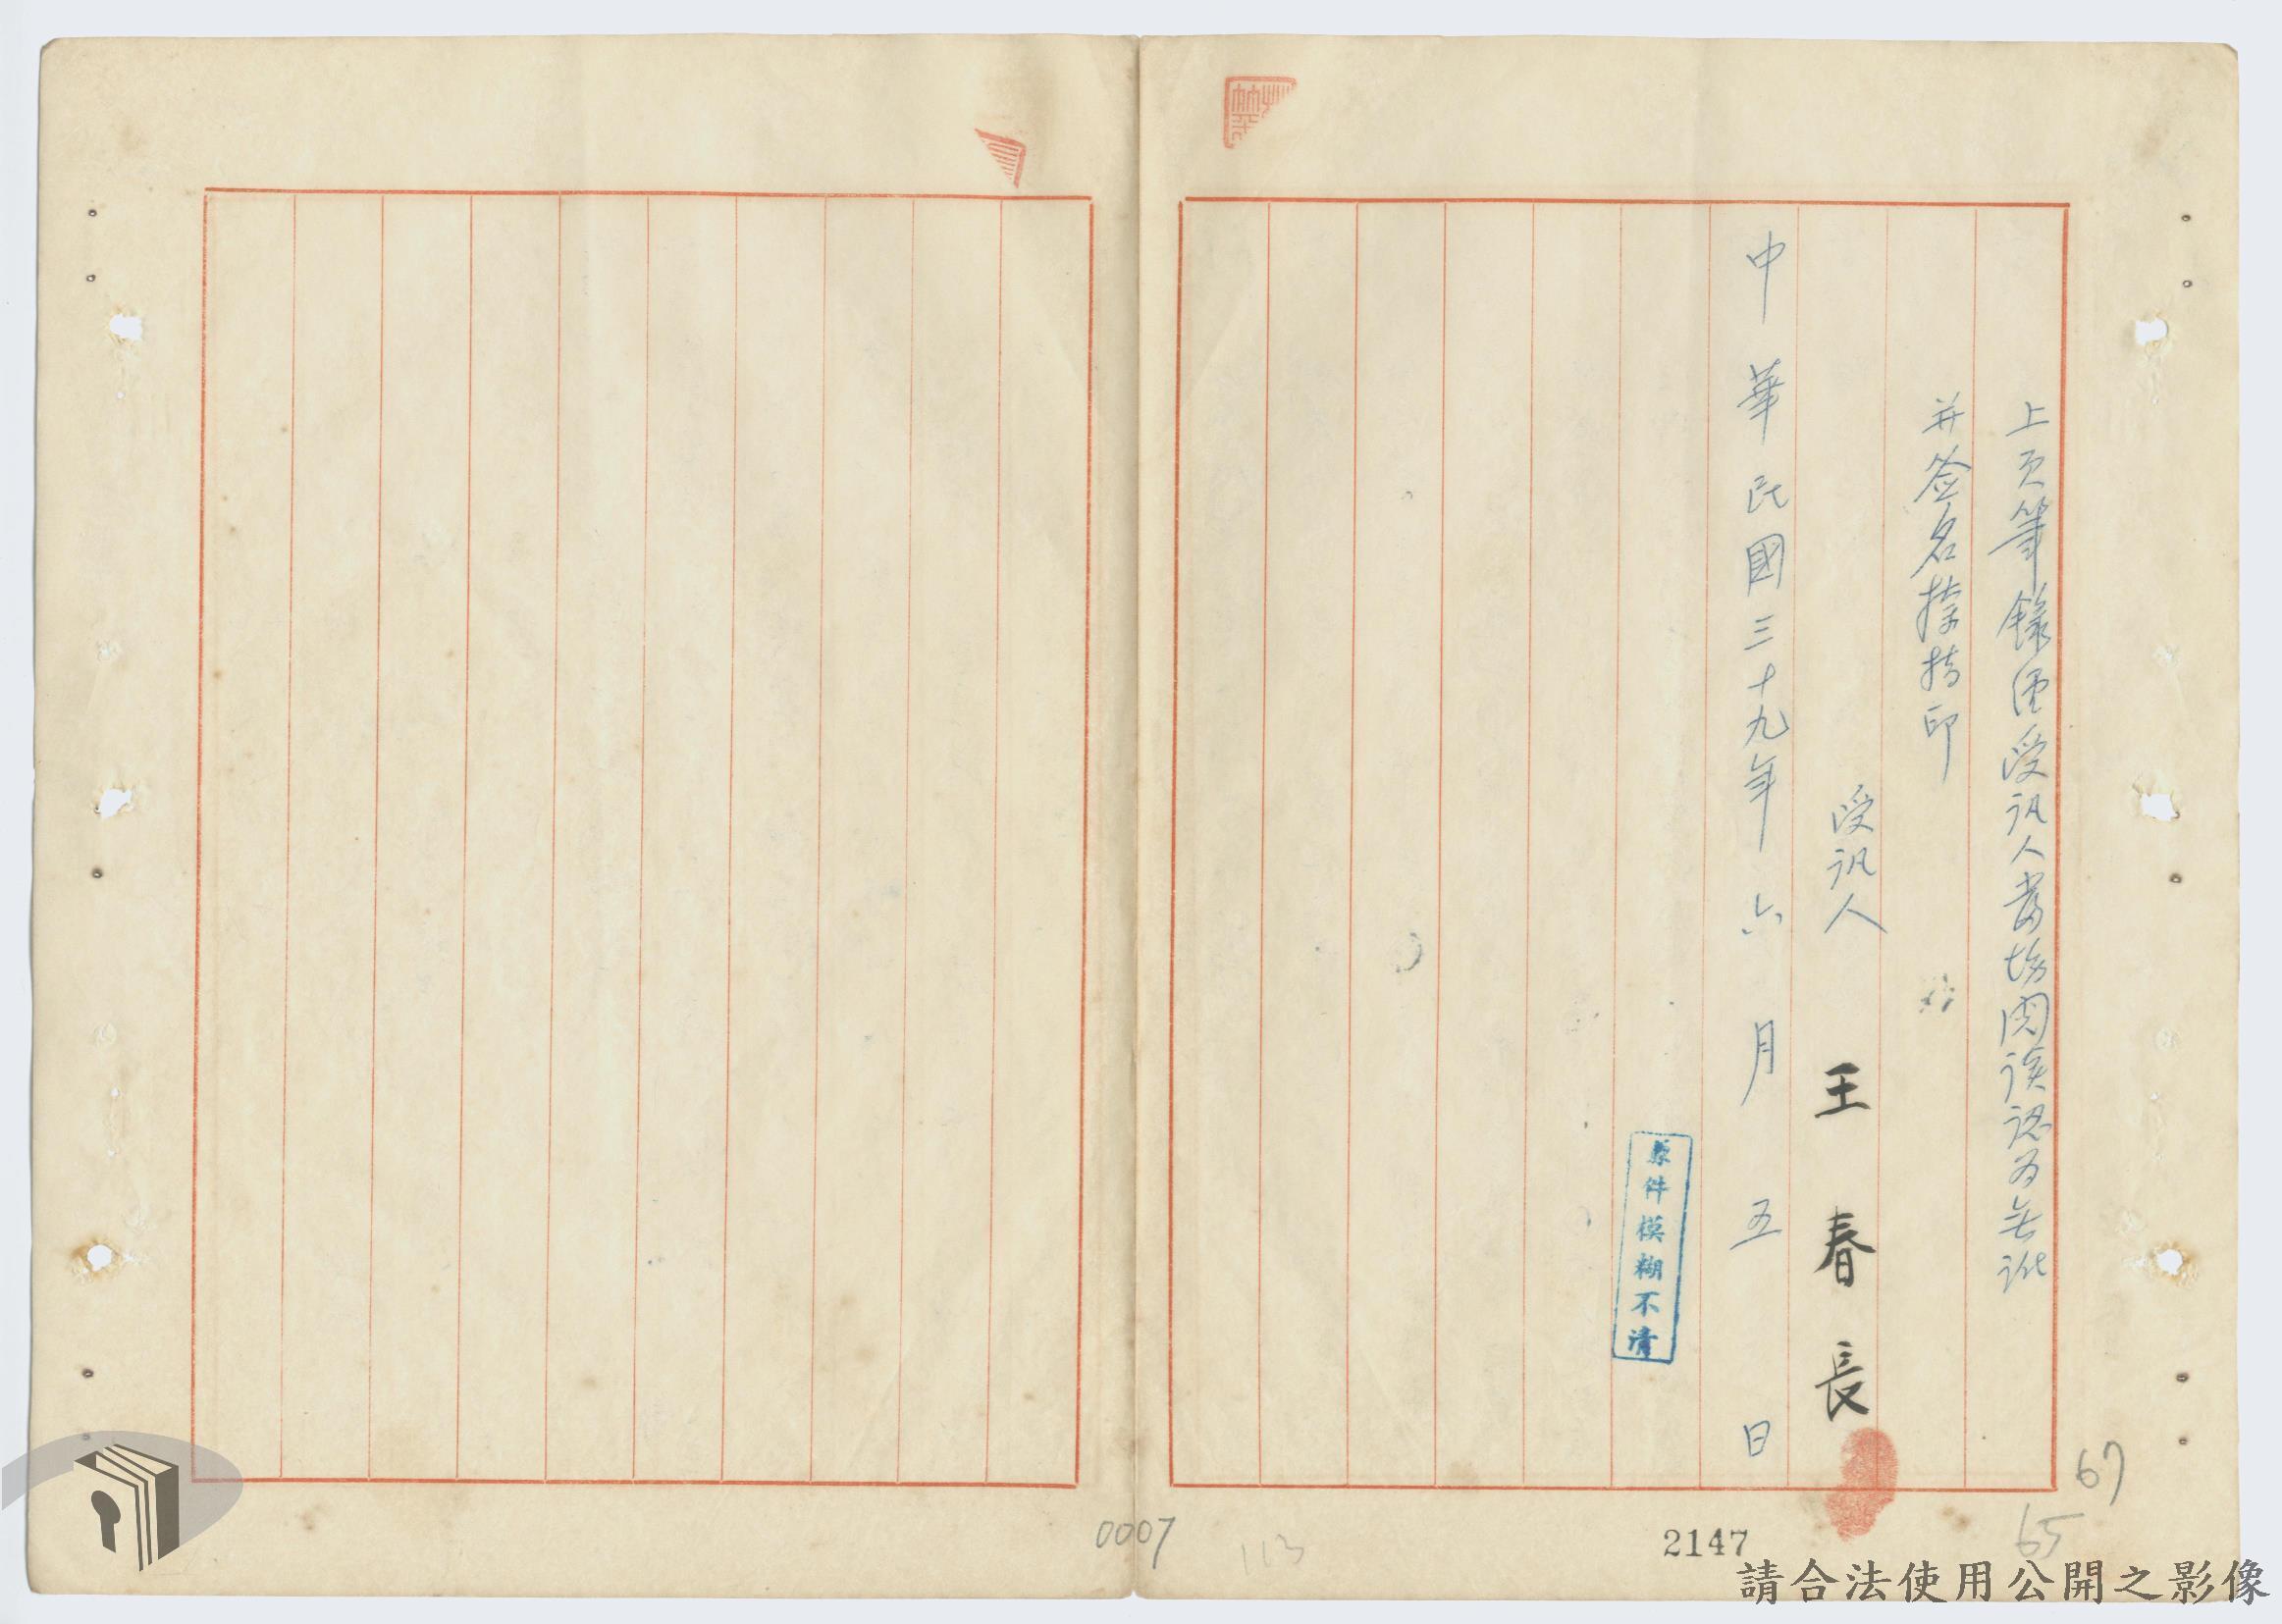 上页筆錄經受訊人當場閱读認为無訛
并签名捺指印
受訊人 王春長
中華民國三十九年六月五日
原件模糊不清
67
65
2147
113
0007
請合法使用公開之影像